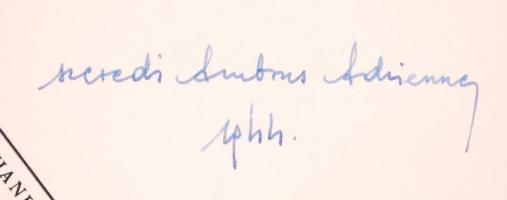 szeredi Ambrus Adrienne
1944.
HAN